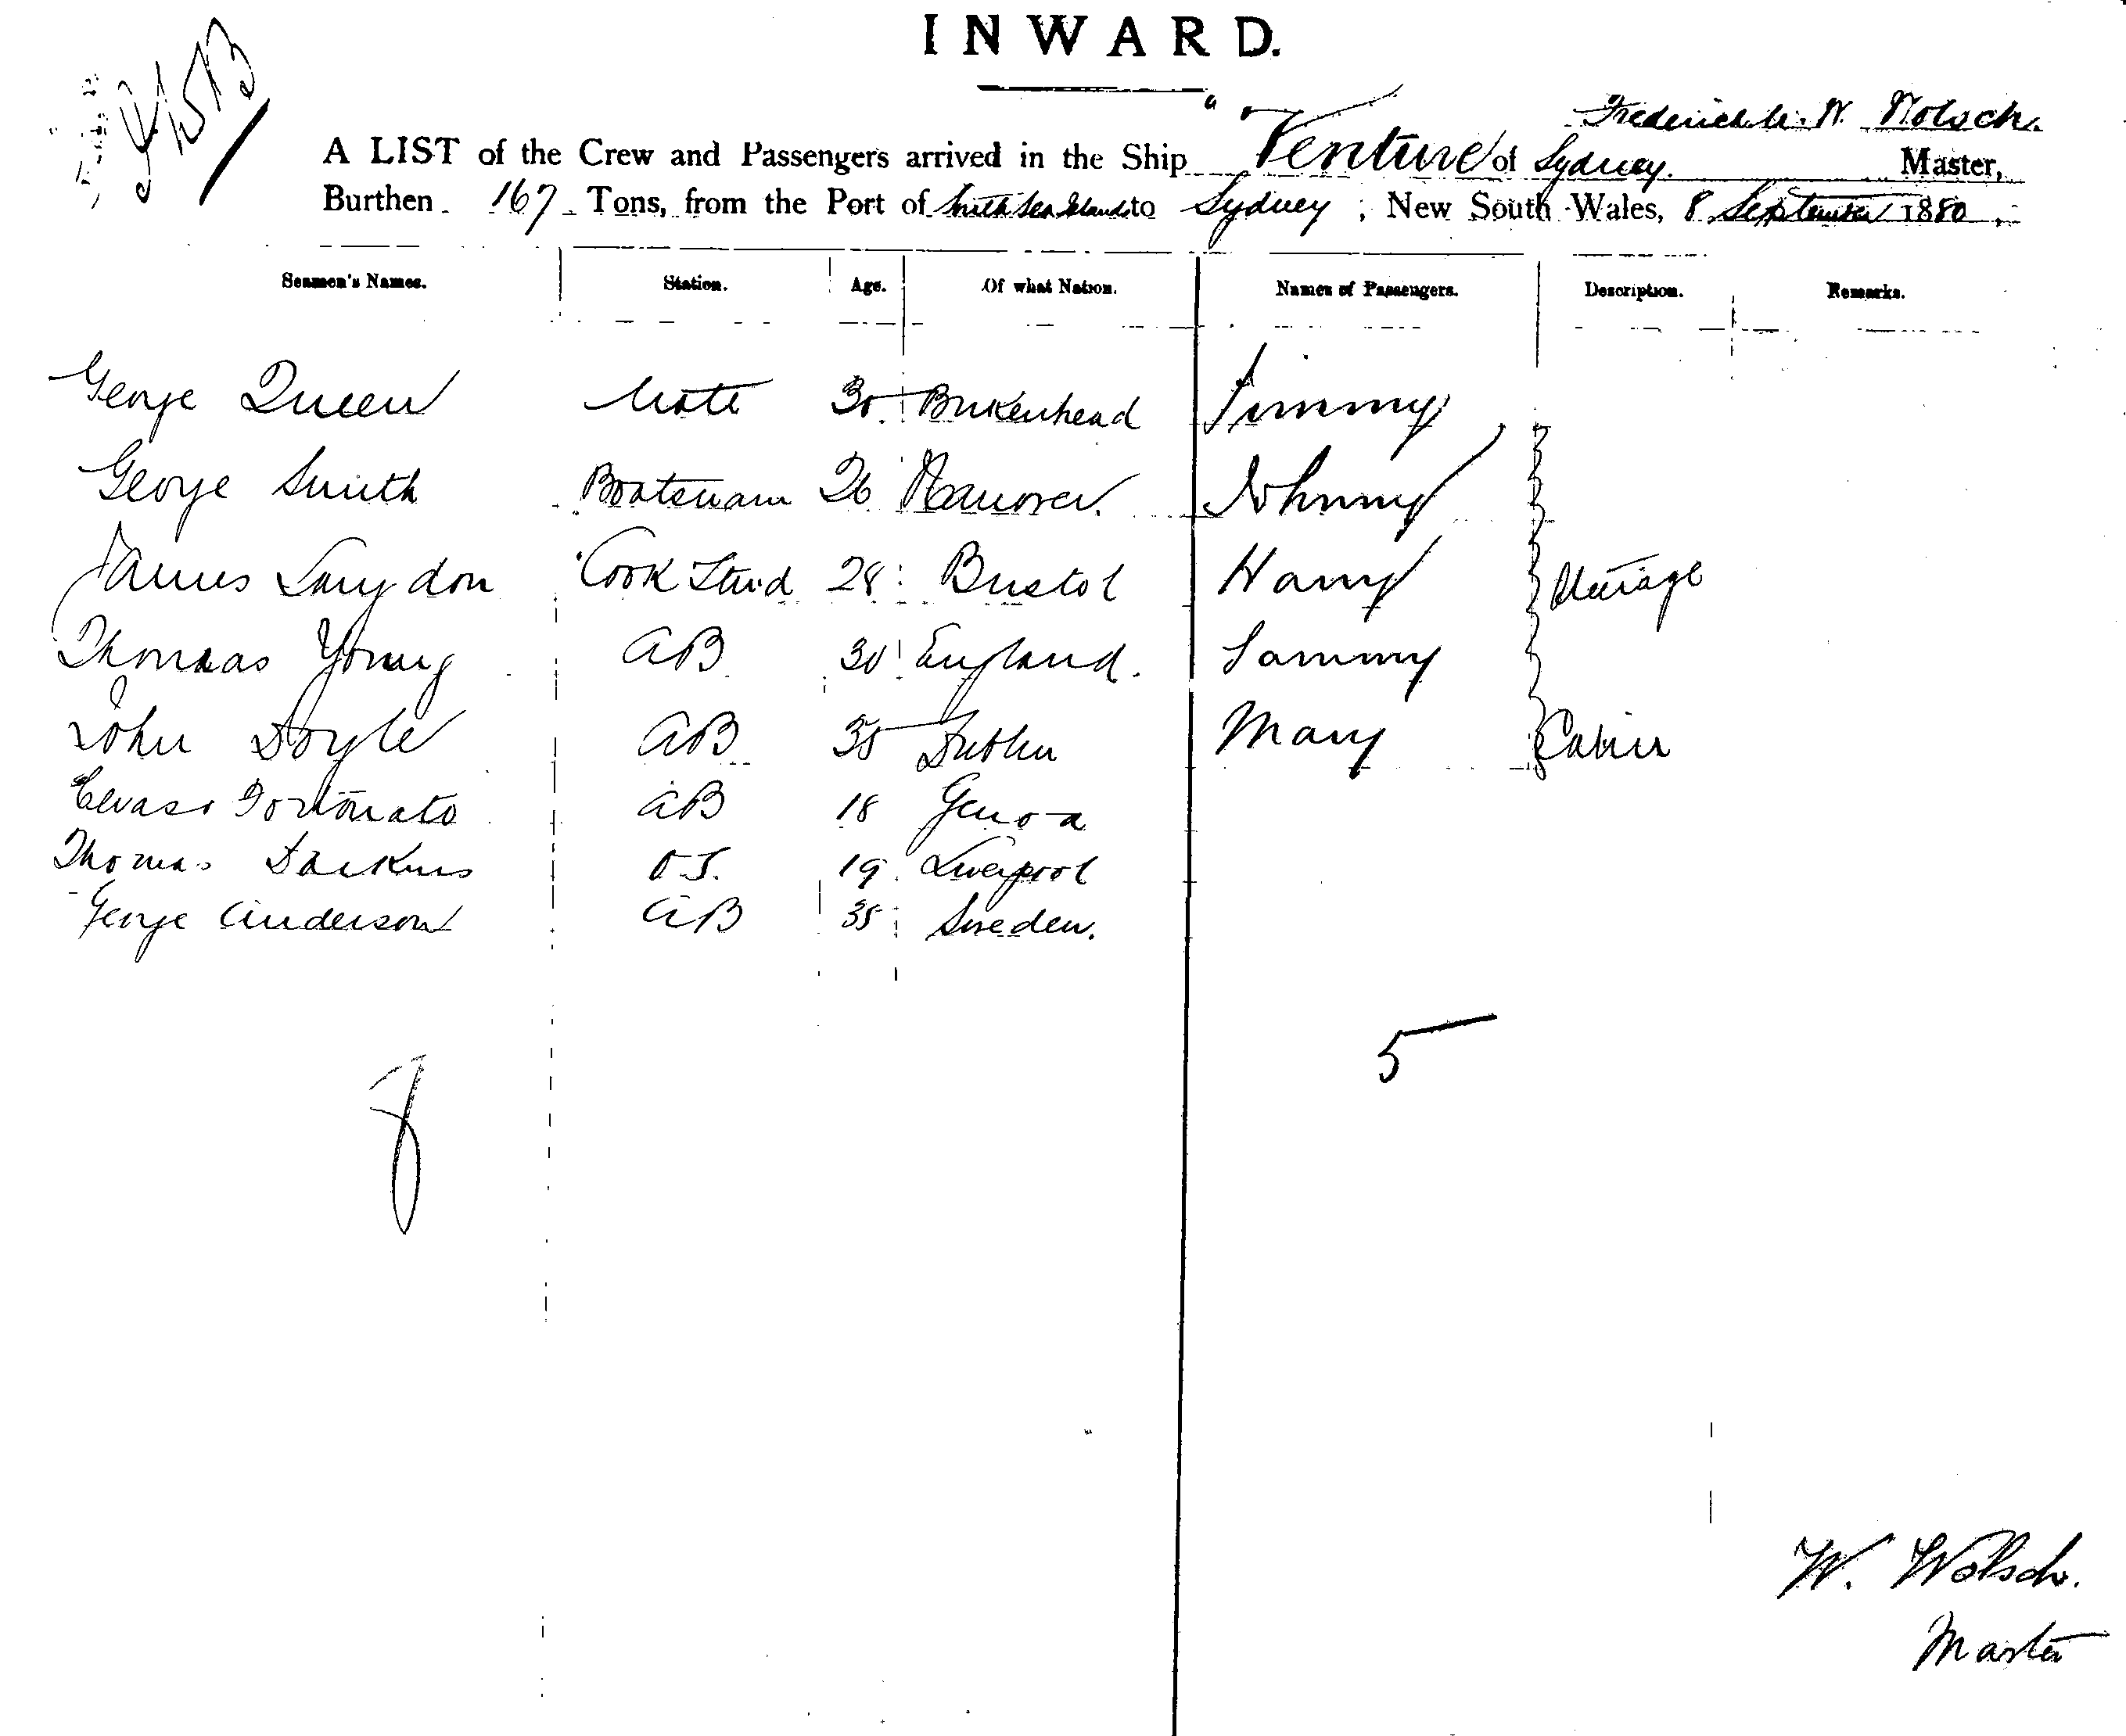 INWARD.
1513
Frederick W. Wolsch.
A LIST of the Crew and Passengers arrived in the Ship "Venture of Sydney. Master,
Burthen 167 Tons, from the Port of South Sea Islands to Sydney, New South Wales, 8 September 1880.
Seamen's Names. Station. Age. Of what Nation. Names of Passengers. Description. Remarks.
George Queen Mate 30 Birkenhead Jimmy
George Smith Boatswain 26 Hanover. Johnny
James Langdon Cook Stwd 28 Bristol Harry Steerage
Thomas Young AB 30 England. Sammy
John Doyle AB 35 Dublin Mary Cabin
Fortunato AB 18 Genoa
Thomas Darkins O.S. 19 Liverpool
George Anderson AB 35 Sweden.
5
8
W. Wolsch.
Master